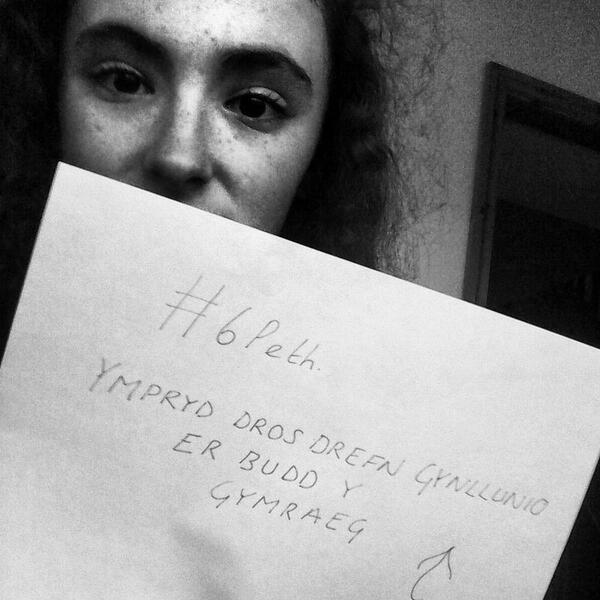 #6Peth.
YMPRYD DROS DREFN GYNLLUNIO
ER BUDD Y
GYMRAEG